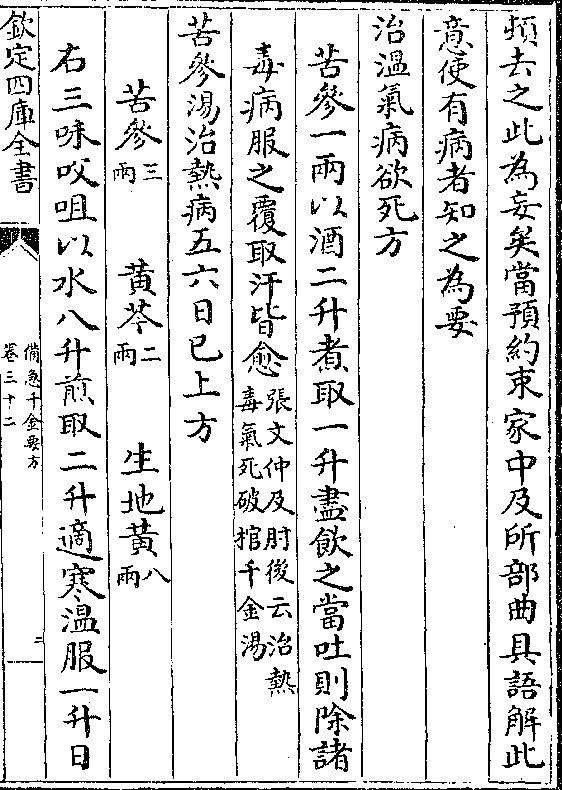 頻去之此為妄矣當預約束家中及所部曲具語解此
意使有病者知之為要
治溫氣病欲死方
苦參一兩以酒二升煮取一升盡飲之當吐則除諸
毒病服之覆取汗皆愈張文仲及肘後云治熱
毒氣死破棺千金湯
苦參湯治熱病五六日已上方
苦參三兩 黃芩二兩 生地黃八兩
右三味㕮咀以水八升煎取二升適寒溫服一升日
欽定四庫全書
備急千金要方
卷三十二
二